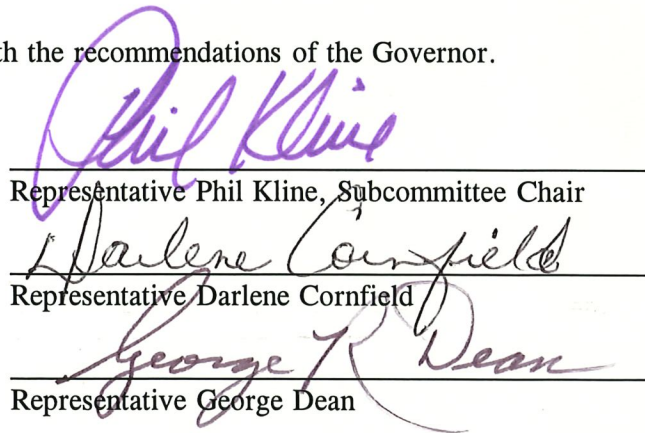 th the recommendations of the Governor.
Phil Kline
Representative Phil Kline, Subcommittee Chair
Darlene Cornfield
Representative Darlene Cornfield
George R Dean
Representative George Dean